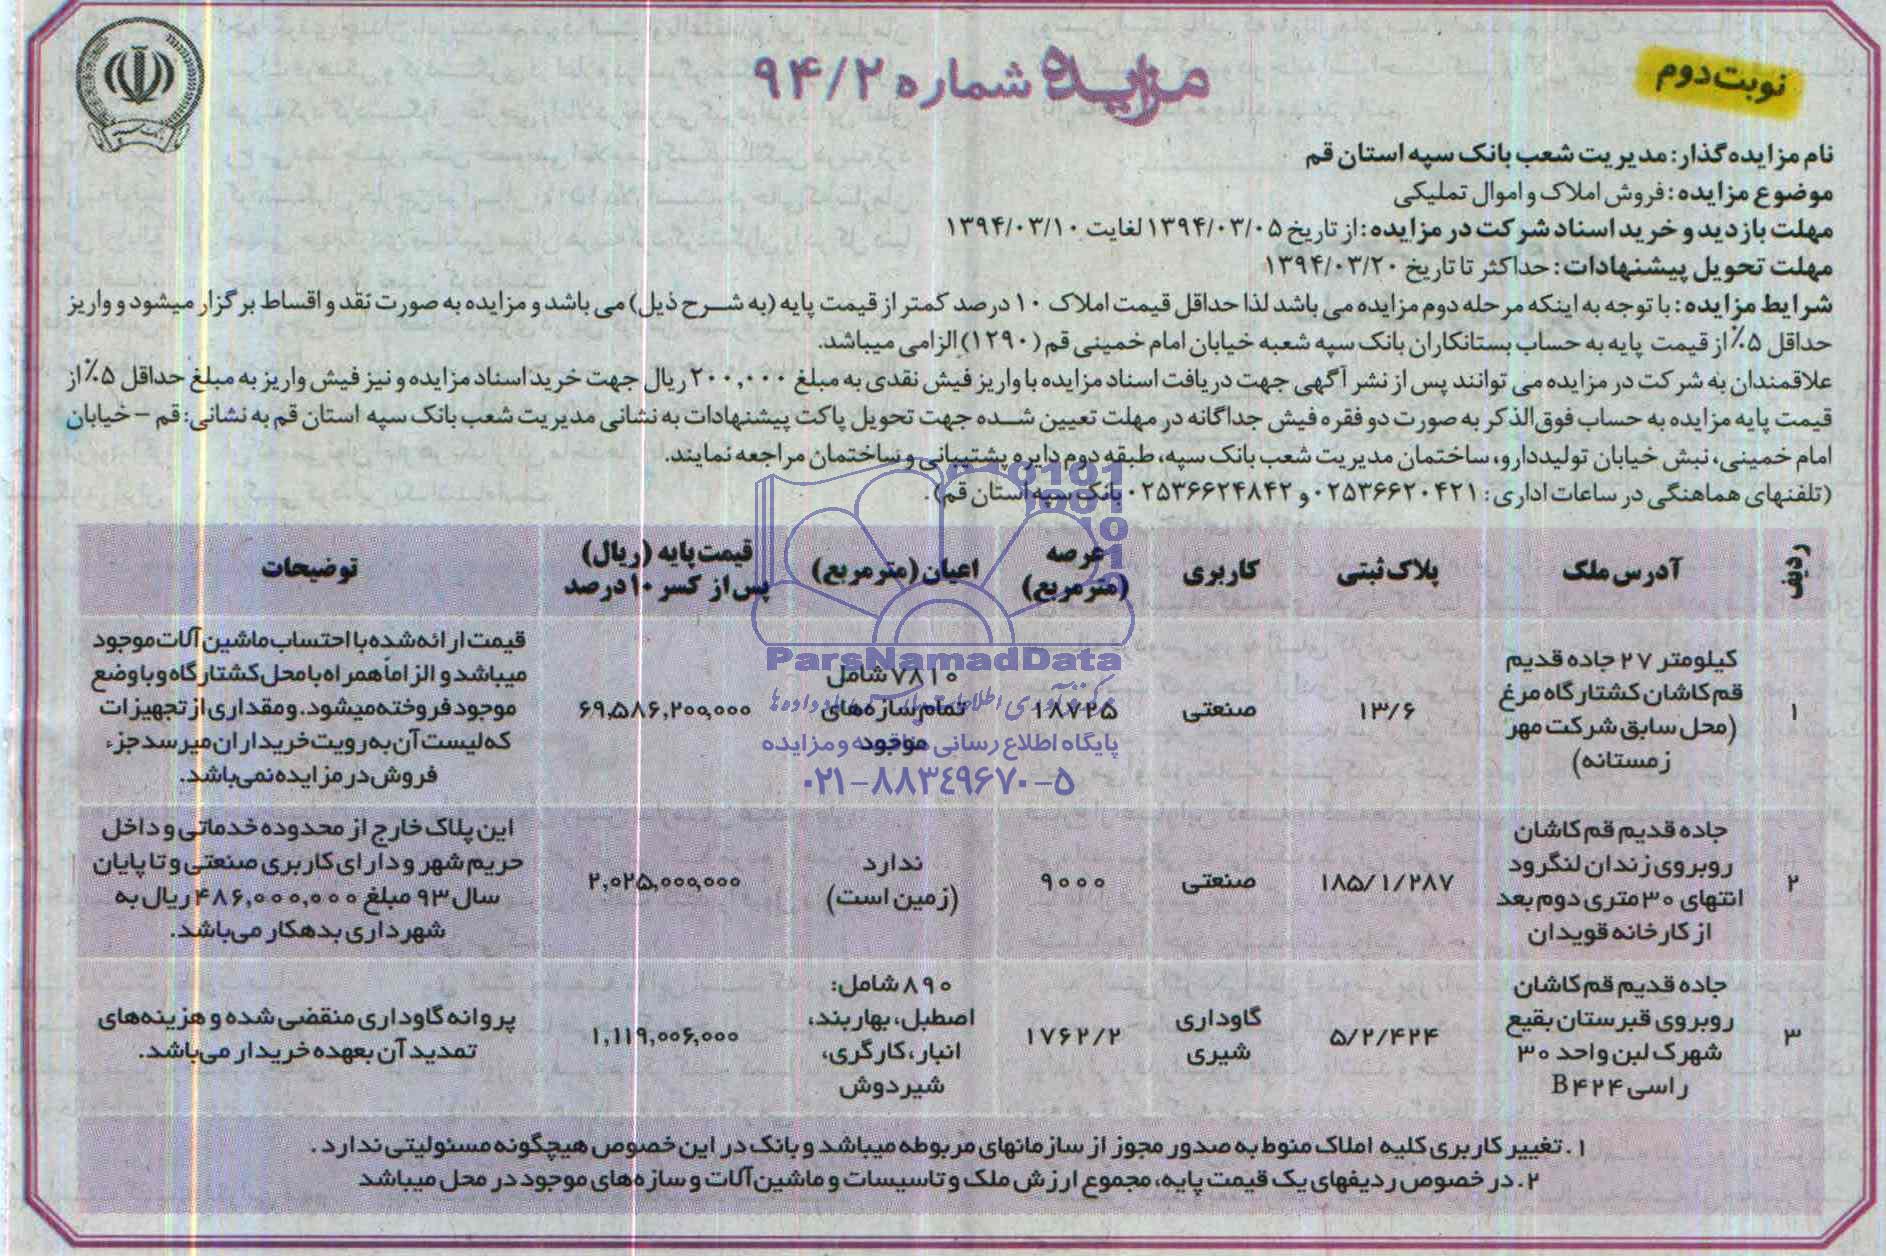 نوبت دوم
مزایده شماره ۹۴/۲
نام مزایده گذار: مدیریت شعب بانک سپه استان قم
موضوع مزایده: فروش املاک و اموال تملیکی
مهلت بازدید و خرید اسناد شرکت در مزایده: از تاریخ ۱۳۹۴/۰۳/۰۵ لغایت ۱۳۹۴/۰۳/۱۰
مهلت تحویل پیشنهادات: حداکثر تا تاریخ ۱۳۹۴/۰۳/۲۰
شرایط مزایده: با توجه به اینکه مرحله دوم مزایده می باشد لذا حداقل قیمت املاک ۱۰ درصد کمتر از قیمت پایه (به شرح ذیل) می باشد و مزایده به صورت نقد و اقساط برگزار میشود و واریز
حداقل ۵٪ از قیمت پایه به حساب بستانکاران بانک سپه شعبه خیابان امام خمینی قم (۱۲۹۰) الزامی میباشد.
علاقمندان به شرکت در مزایده می توانند پس از نشر آگهی جهت دریافت اسناد مزایده با واریز فیش نقدی به مبلغ ۲۰۰,۰۰۰ ریال جهت خرید اسناد مزایده و نیز فیش واریز به مبلغ حداقل ۵٪ از
قیمت پایه مزایده به حساب فوق الذکر به صورت دو فقره فیش جداگانه در مهلت تعیین شده جهت تحویل پاکت پیشنهادات به نشانی مدیریت شعب بانک سپه استان قم به نشانی: قم – خیابان
امام خمینی، نبش خیابان تولیددارو، ساختمان مدیریت شعب بانک سپه، طبقه دوم دایره پشتیبانی و ساختمان مراجعه نمایند.
(تلفنهای هماهنگی در ساعات اداری: ۰۲۵۳۶۶۲۰۴۲۱ و ۰۲۵۳۶۶۲۴۸۴۲ بانک سپه استان قم).
ردیف آدرس ملک پلاک ثبتی کاربری عرصه (مترمربع) اعیان (مترمربع) قیمت پایه (ریال) پس از کسر ۱۰ درصد توضیحات
۱
کیلومتر ۲۷ جاده قدیم
قم کاشان کشتارگاه مرغ
(محل سابق شرکت مهر
زمستانه)
۱۳/۶
صنعتی
۱۸۷۲۵
۷۸۱۰ شامل
تمام سازه های
موجود
۶۹,۵۸۶,۲۰۰,۰۰۰
قیمت ارائه شده با احتساب ماشین آلات موجود
میباشد و الزاماً همراه با محل کشتارگاه و با وضع
موجود فروخته میشود. و مقداری از تجهیزات
که لیست آن به رویت خریداران میرسد جزء
فروش در مزایده نمی باشد.
۲
جاده قدیم قم کاشان
روبروی زندان لنگرود
انتهای ۳۰ متری دوم بعد
از کارخانه قویدان
۱۸۵/۱/۲۸۷
صنعتی
۹۰۰۰
ندارد
(زمین است)
۲,۰۲۵,۰۰۰,۰۰۰
این پلاک خارج از محدوده خدماتی و داخل
حریم شهر و دارای کاربری صنعتی و تا پایان
سال ۹۳ مبلغ ۴۸۶,۰۰۰,۰۰۰ ریال به
شهرداری بدهکار می باشد.
۳
جاده قدیم قم کاشان
روبروی قبرستان بقیع
شهرک لبن واحد ۳۰
راسی B۴۲۴
۵/۲/۴۲۴
گاوداری
شیری
۱۷۶۲/۲
۸۹۰ شامل:
اصطبل، بهاربند،
انبار، کارگری،
شیردوش
۱,۱۱۹,۰۰۶,۰۰۰
پروانه گاوداری منقضی شده و هزینه های
تمدید آن بعهده خریدار می باشد.
۱. تغییر کاربری کلیه املاک منوط به صدور مجوز از سازمانهای مربوطه میباشد و بانک در این خصوص هیچگونه مسئولیتی ندارد.
۲. در خصوص ردیفهای یک قیمت پایه، مجموع ارزش ملک و تاسیسات و ماشین آلات و سازه های موجود در محل میباشد
ParsNamadData
پایگاه اطلاع رسانی مناقصه و مزایده
۰۲۱-۸۸۳۴۹۶۷۰-۵